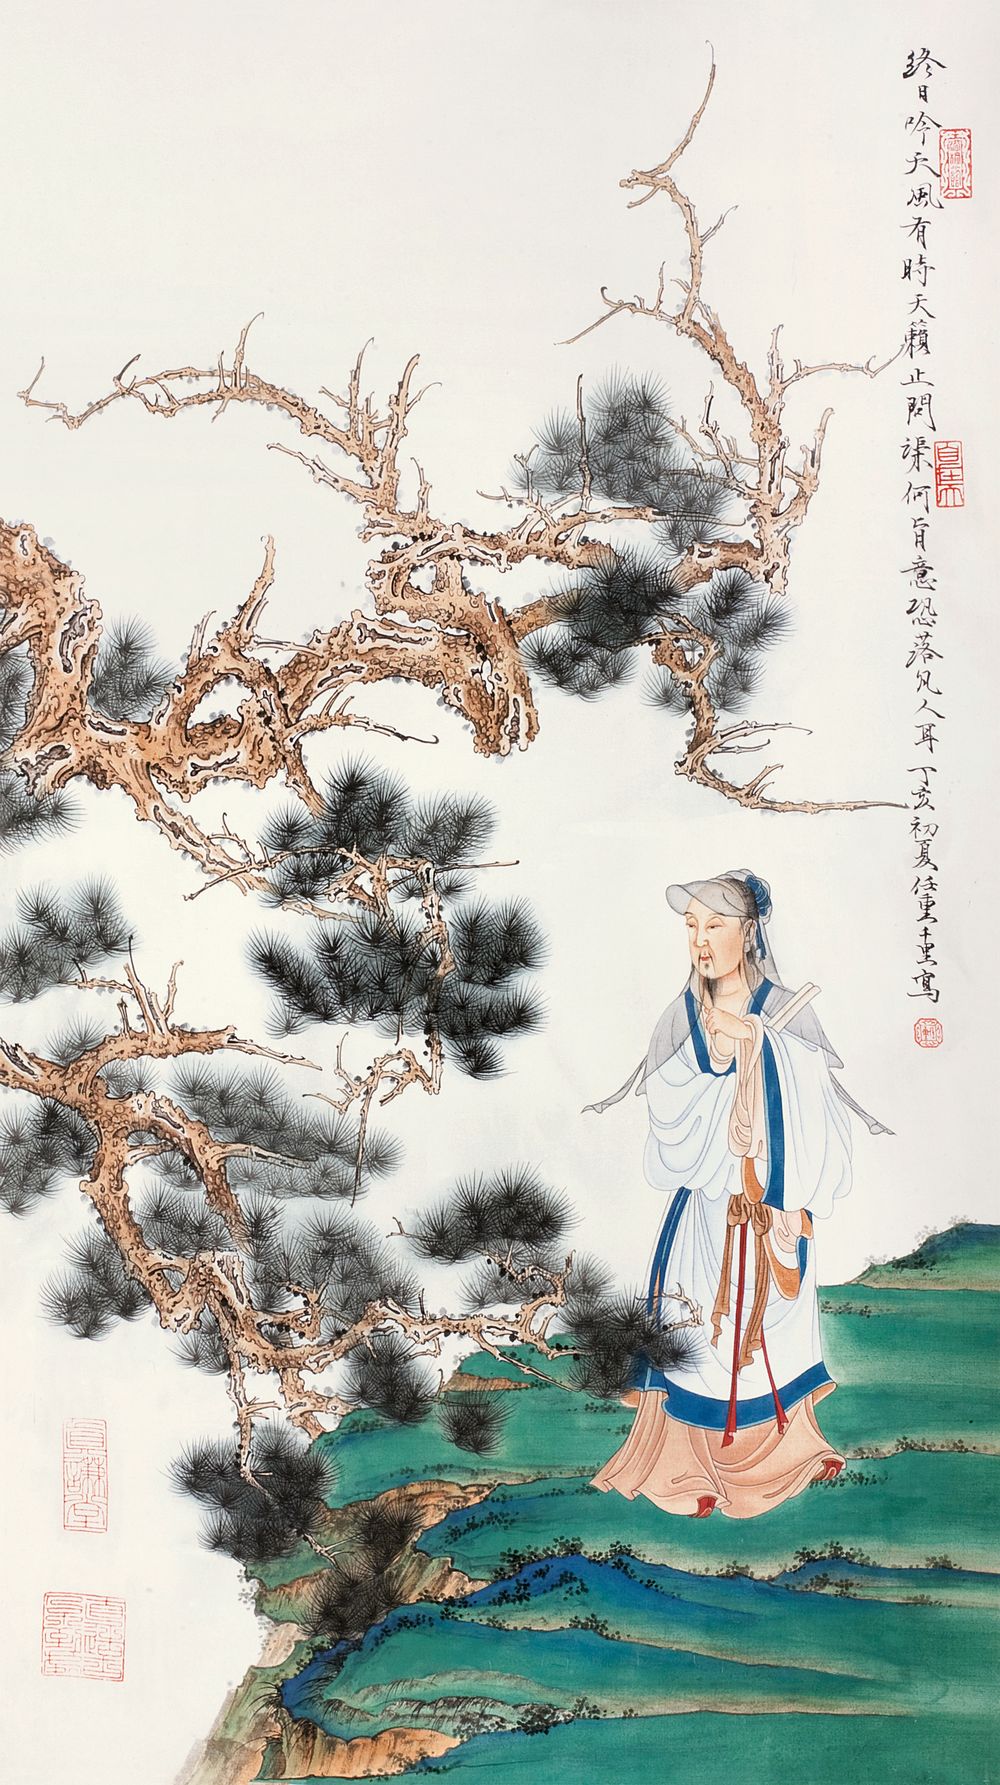 終日吟天風有時天籟止問渠何旨意恐落凡人耳 丁亥初夏任重千里寫